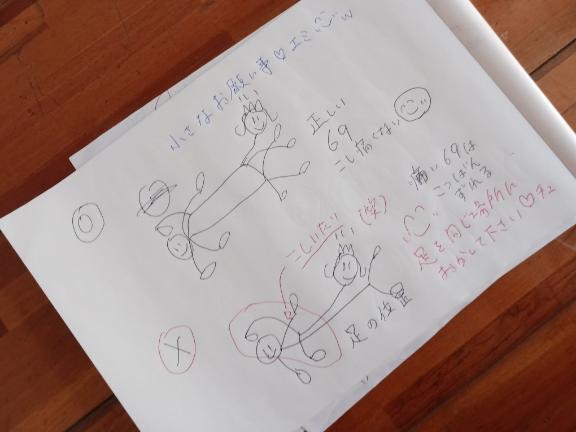 小さなお願い事♡エミ w
○
正しい
69
こし痛くない
痛い69は
こつばん
ずれる
こしいたい(笑)
足を同じ場所に
おかして下さい♡チュ
×
足の位置